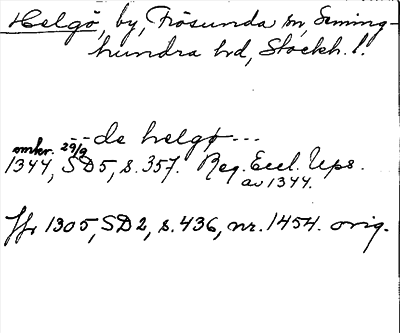 Helgö, by, Frösunda sn, Seming-
hundra hd, Stockh. l.
-- de helgø ---
omkr. 29/9
1344, SD5, s. 357. Reg. Eccl. Ups.
av 1344.
Jfr 1305, SD2, s. 436, nr. 1454. orig.